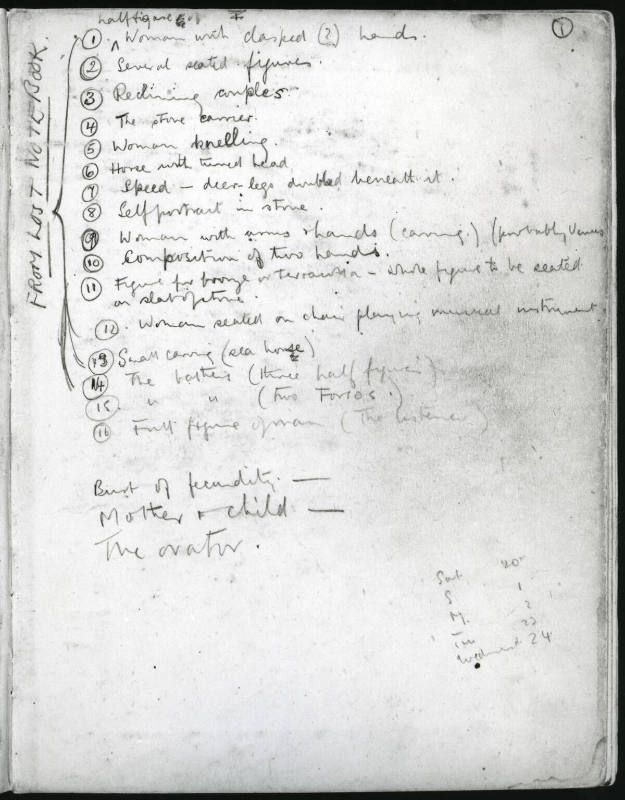 half figure of
①
① Woman with clasped (2) hands.
② Several seated figures.
③ Reclining couples
④ The stone carrier.
⑤ Woman knelling.
⑥ Horse with turned head
⑦ Speed – deer legs doubled beneath it.
⑧ Self portrait in stone.
⑨ Woman with arms & hands (carving.) (probably Venus
⑩ Composition of two hands.
⑪ Figure for bronze or terracotta – whole figure to be seated
on slab of stone.
⑫ Woman seated on chair playing musical instrument.
⑬ Small carving (sea horse)
⑭ The bathers (three half figures)
⑮ " " (two Torsos.)
⑯ Full figure of man (The listener)
FROM LOST NOTEBOOK.
Bust of fecundity. —
Mother & child —
The orator.
Sat 20
S 1
M. 2
Tu 23
Wednesd. 24